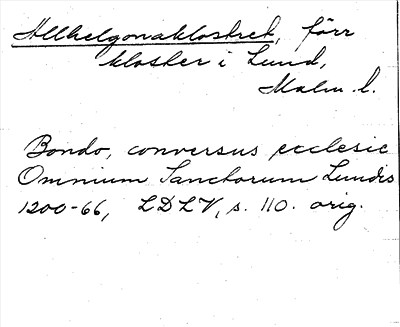 Allhelgonaklostret, förr
kloster i Lund,
Malm. l.
Bondo, conversus ecclesie
Omnium Sanctorum Lundis
1200-66, LDLV, s. 110. orig.